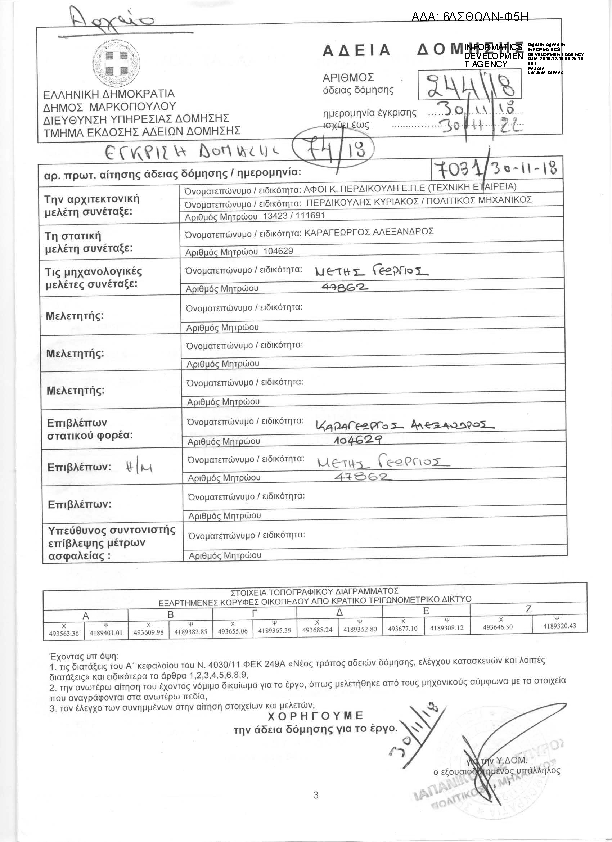 Αρχείο
ΑΔΑ: 6ΛΣΘΩΛΝ-Φ5Η
ΕΛΛΗΝΙΚΗ ΔΗΜΟΚΡΑΤΙΑ
ΔΗΜΟΣ ΜΑΡΚΟΠΟΥΛΟΥ
ΔΙΕΥΘΥΝΣΗ ΥΠΗΡΕΣΙΑΣ ΔΟΜΗΣΗΣ
ΤΜΗΜΑ ΕΚΔΟΣΗΣ ΑΔΕΙΩΝ ΔΟΜΗΣΗΣ
ΑΔΕΙΑ
INFORMATICS
DEVELOPMEN
T AGENCY
ΑΡΙΘΜΟΣ
άδειας δόμησης 244/18
ημερομηνία έγκρισης 30/11/18
ισχύει έως 30/11/22
ΕΓΚΡΙΣΗ ΔΟΜΗΣΗΣ 74/18
αρ. πρωτ. αίτησης άδειας δόμησης / ημερομηνία: 7031/30-11-18
Την αρχιτεκτονική
μελέτη συνέταξε:
Όνοματεπώνυμο / ειδικότητα: ΑΦΟΙ Κ. ΠΕΡΔΙΚΟΥΛΗ Ε.Π.Ε (ΤΕΧΝΙΚΗ ΕΤΑΙΡΕΙΑ)
Όνοματεπώνυμο / ειδικότητα: ΠΕΡΔΙΚΟΥΛΗΣ ΚΥΡΙΑΚΟΣ / ΠΟΛΙΤΙΚΟΣ ΜΗΧΑΝΙΚΟΣ
Αριθμός Μητρώου 13423 / 111691
Τη στατική
μελέτη συνέταξε:
Όνοματεπώνυμο / ειδικότητα: ΚΑΡΑΓΕΩΡΓΟΣ ΑΛΕΞΑΝΔΡΟΣ
Αριθμός Μητρώου 104629
Τις μηχανολογικές
μελέτες συνέταξε:
Όνοματεπώνυμο / ειδικότητα: ΜΕΤΗΣ ΓΕΩΡΓΙΟΣ
Αριθμός Μητρώου 47862
Μελετητής:
Όνοματεπώνυμο / ειδικότητα:
Αριθμός Μητρώου
Μελετητής:
Όνοματεπώνυμο / ειδικότητα:
Αριθμός Μητρώου
Μελετητής:
Όνοματεπώνυμο / ειδικότητα:
Αριθμός Μητρώου
Επιβλέπων
στατικού φορέα:
Όνοματεπώνυμο / ειδικότητα: ΚΑΡΑΓΕΩΡΓΟΣ ΑΛΕΞΑΝΔΡΟΣ
Αριθμός Μητρώου 104629
Επιβλέπων: Η/Μ
Όνοματεπώνυμο / ειδικότητα: ΜΕΤΗΣ ΓΕΩΡΓΙΟΣ
Αριθμός Μητρώου 47862
Επιβλέπων:
Όνοματεπώνυμο / ειδικότητα:
Αριθμός Μητρώου
Υπεύθυνος συντονιστής
επίβλεψης μέτρων
ασφαλείας :
Όνοματεπώνυμο / ειδικότητα:
Αριθμός Μητρώου
ΣΤΟΙΧΕΙΑ ΤΟΠΟΓΡΑΦΙΚΟΥ ΔΙΑΓΡΑΜΜΑΤΟΣ
ΕΞΑΡΤΗΜΕΝΕΣ ΚΟΡΥΦΕΣ ΟΙΚΟΠΕΔΟΥ ΑΠΟ ΚΡΑΤΙΚΟ ΤΡΙΓΩΝΟΜΕΤΡΙΚΟ ΔΙΚΤΥΟ
Α Β Γ Δ Ε Ζ
Χ Ψ Χ Ψ Χ Ψ Χ Ψ Χ Ψ Χ Ψ
493563.36 4189401.01 493609.98 4189382.85 493655.06 4189365.39 493688.24 4189352.80 493677.10 4189308.12 493646.50 4189320.43
Έχοντας υπ΄όψη:
1. τις διατάξεις του Α΄ κεφαλαίου του Ν. 4030/11 ΦΕΚ 249Α «Νέος τρόπος αδειών δόμησης, ελέγχου κατασκευών και λοιπές
διατάξεις» και ειδικότερα τα άρθρα 1,2,3,4,5,6,8,9,
2. την ανωτέρω αίτηση του έχοντος νόμιμο δικαίωμα για το έργο, όπως μελετήθηκε από τους μηχανικούς σύμφωνα με τα στοιχεία
που αναγράφονται στα ανωτέρω πεδία,
3. τον έλεγχο των συνημμένων στην αίτηση στοιχείων και μελετών,
ΧΟΡΗΓΟΥΜΕ
την άδεια δόμησης για το έργο.
30/11/18
για την Υ.ΔΟΜ.
ο εξουσιοδοτημένος υπάλληλος
3